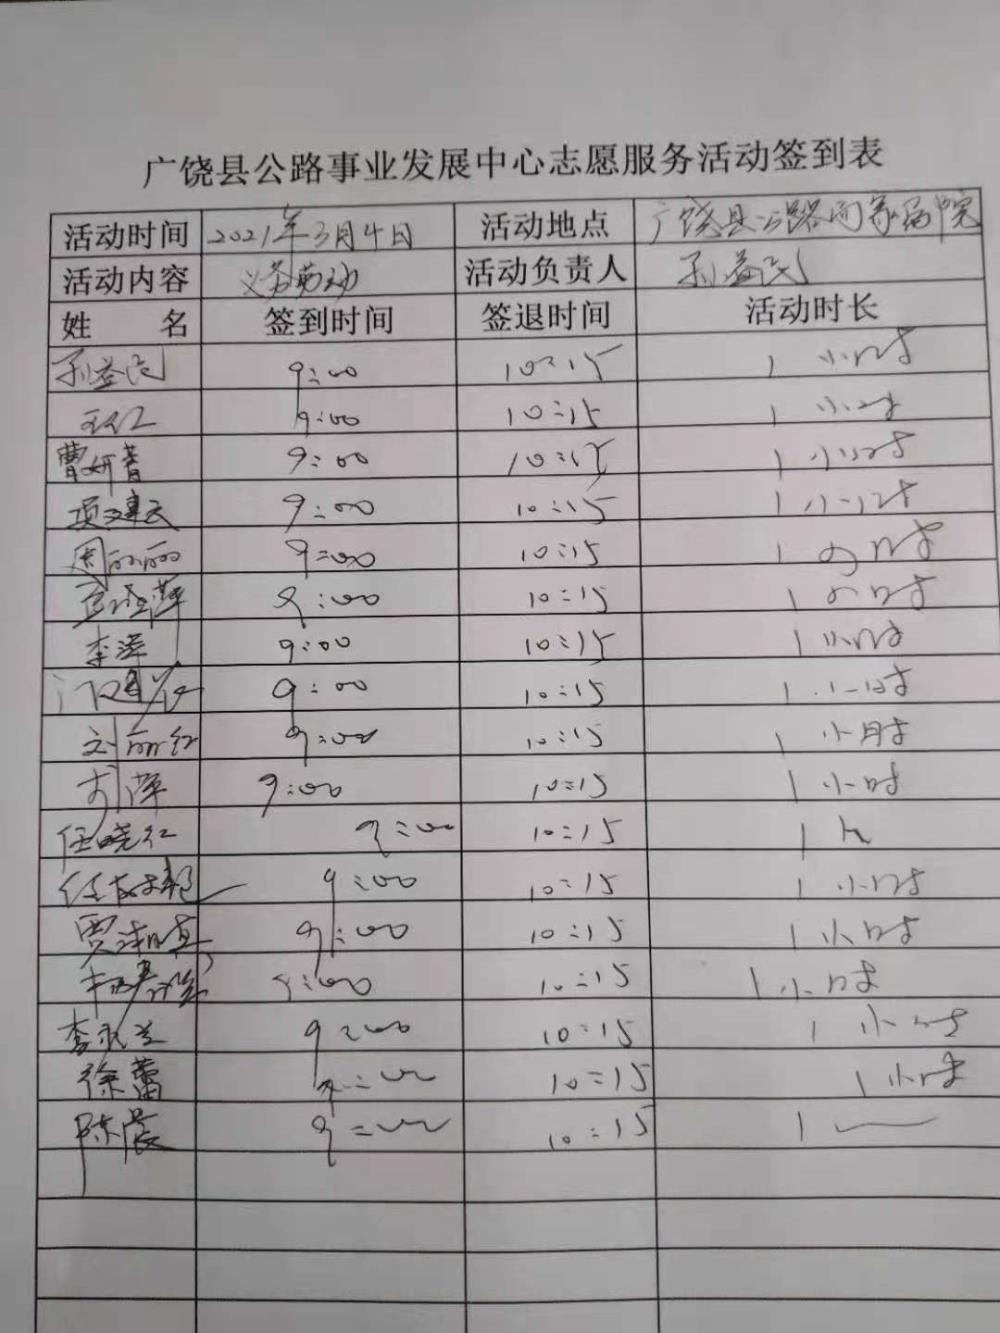 广饶县公路事业发展中心志愿服务活动签到表
活动时间 2021年3月4日 活动地点 广饶县公路
活动内容 义务劳动 活动负责人 孙益民
姓 名 签到时间 签退时间 活动时长
孙益民 9:00 10:15 1小时
9:00 10:15 1小时
曹妍菁 9:00 10:15 1小时
项建云 9:00 10:15 1小时
周丽丽 9:00 10:15 1小时
9:00 10:15 1小时
李萍 9:00 10:15 1小时
9:00 10:15 1小时
刘丽红 9:00 10:15 1小时
9:00 10:15 1小时
任晓红 9:00 10:15 1h
任 9:00 10:15 1小时
贾 9:00 10:15 1小时
9:00 10:15 1小时
李 兰 9:00 10:15 1小时
徐蕾 9:00 10:15 1小时
陈晨 9:00 10:15 1